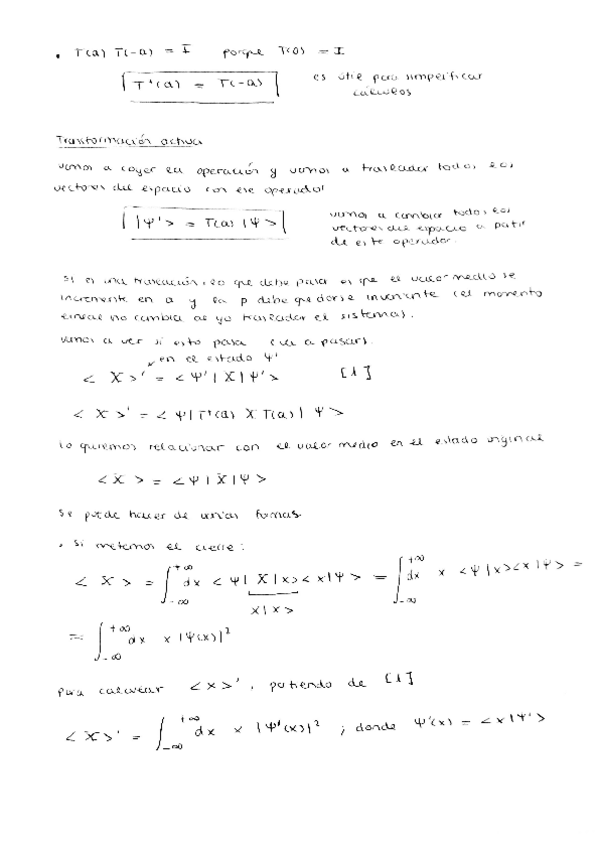 • T(a) T(-a) = I porque T(0) = I
T⁺(a) = T(-a) es util para simplificar
cálculos
Transformación activa
vamos a coger la operación y vamos a trasladar todos los
vectores del espacio con ese operador
|Ψ'> = T(a) |Ψ> vamos a cambiar todos los
vectores del espacio a partir
de este operador.
Si es una traslación, lo que debe pasar es que el valor medio se
incremente en a y la p debe quedarse invariante (el momento
lineal no cambia al yo trasladar el sistema).
vamos a ver si esto pasa (va a pasar).
en el estado Ψ'
< X >' = < Ψ' | X | Ψ' > [1]
< X >' = < Ψ | T⁺(a) X T(a) | Ψ >
lo queremos relacionar con el valor medio en el estado original
< X > = < Ψ | X | Ψ >
Se puede hacer de varias formas.
• Si metemos el cierre:
< X > = ∫_{-∞}^{+∞} dx < Ψ | X | x > < x | Ψ > = ∫_{-∞}^{+∞} dx x < Ψ | x > < x | Ψ > =
x | x >
= ∫_{-∞}^{+∞} dx x |Ψ(x)|²
para calcular < x >', partiendo de [1]
< X >' = ∫_{-∞}^{+∞} dx x |Ψ'(x)|² ; donde Ψ'(x) = < x | Ψ' >